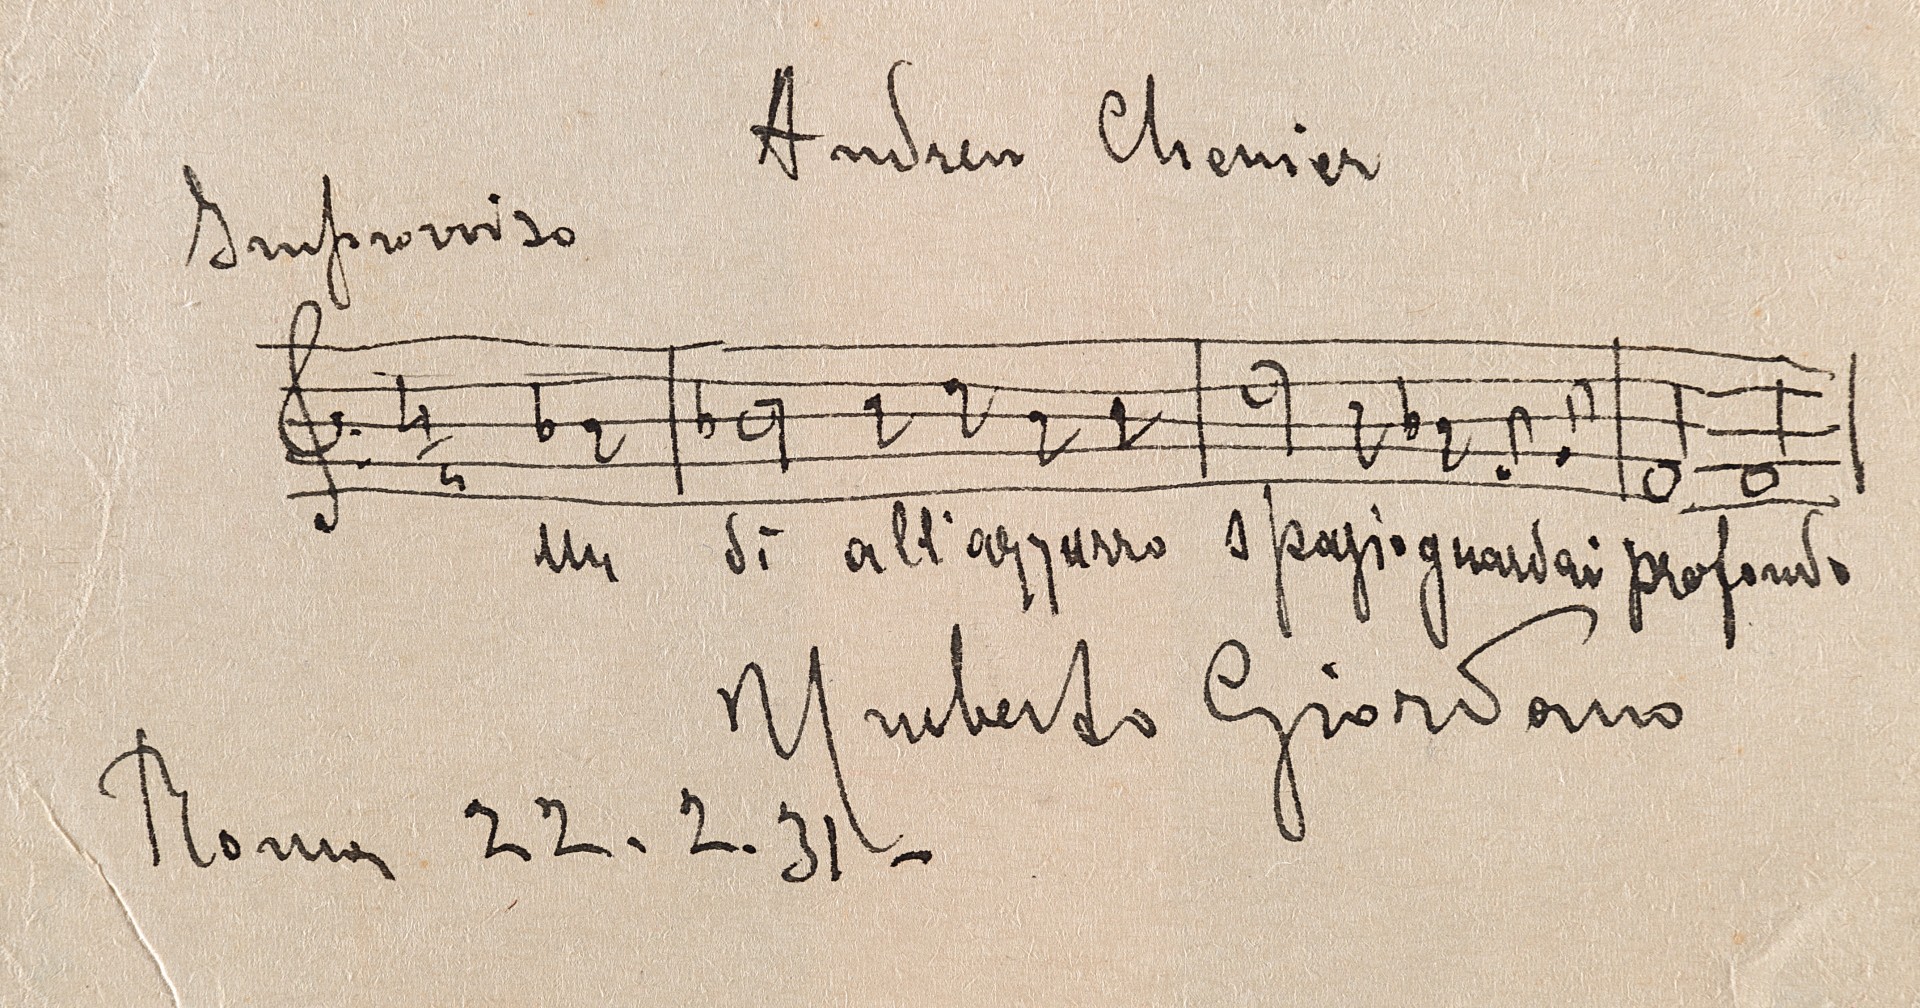 Andrea Chenier
Improvviso
Un dì all'azzurro spazio guardai profondo
Umberto Giordano
Roma 22.2.31-